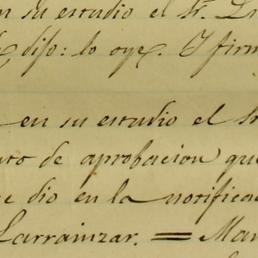 en su estudio el Sr. L
dijo: lo oye. Y firm
en su estudio el S
uto de aprobacion que
e dio en la notifica
Larrainzar. = Man